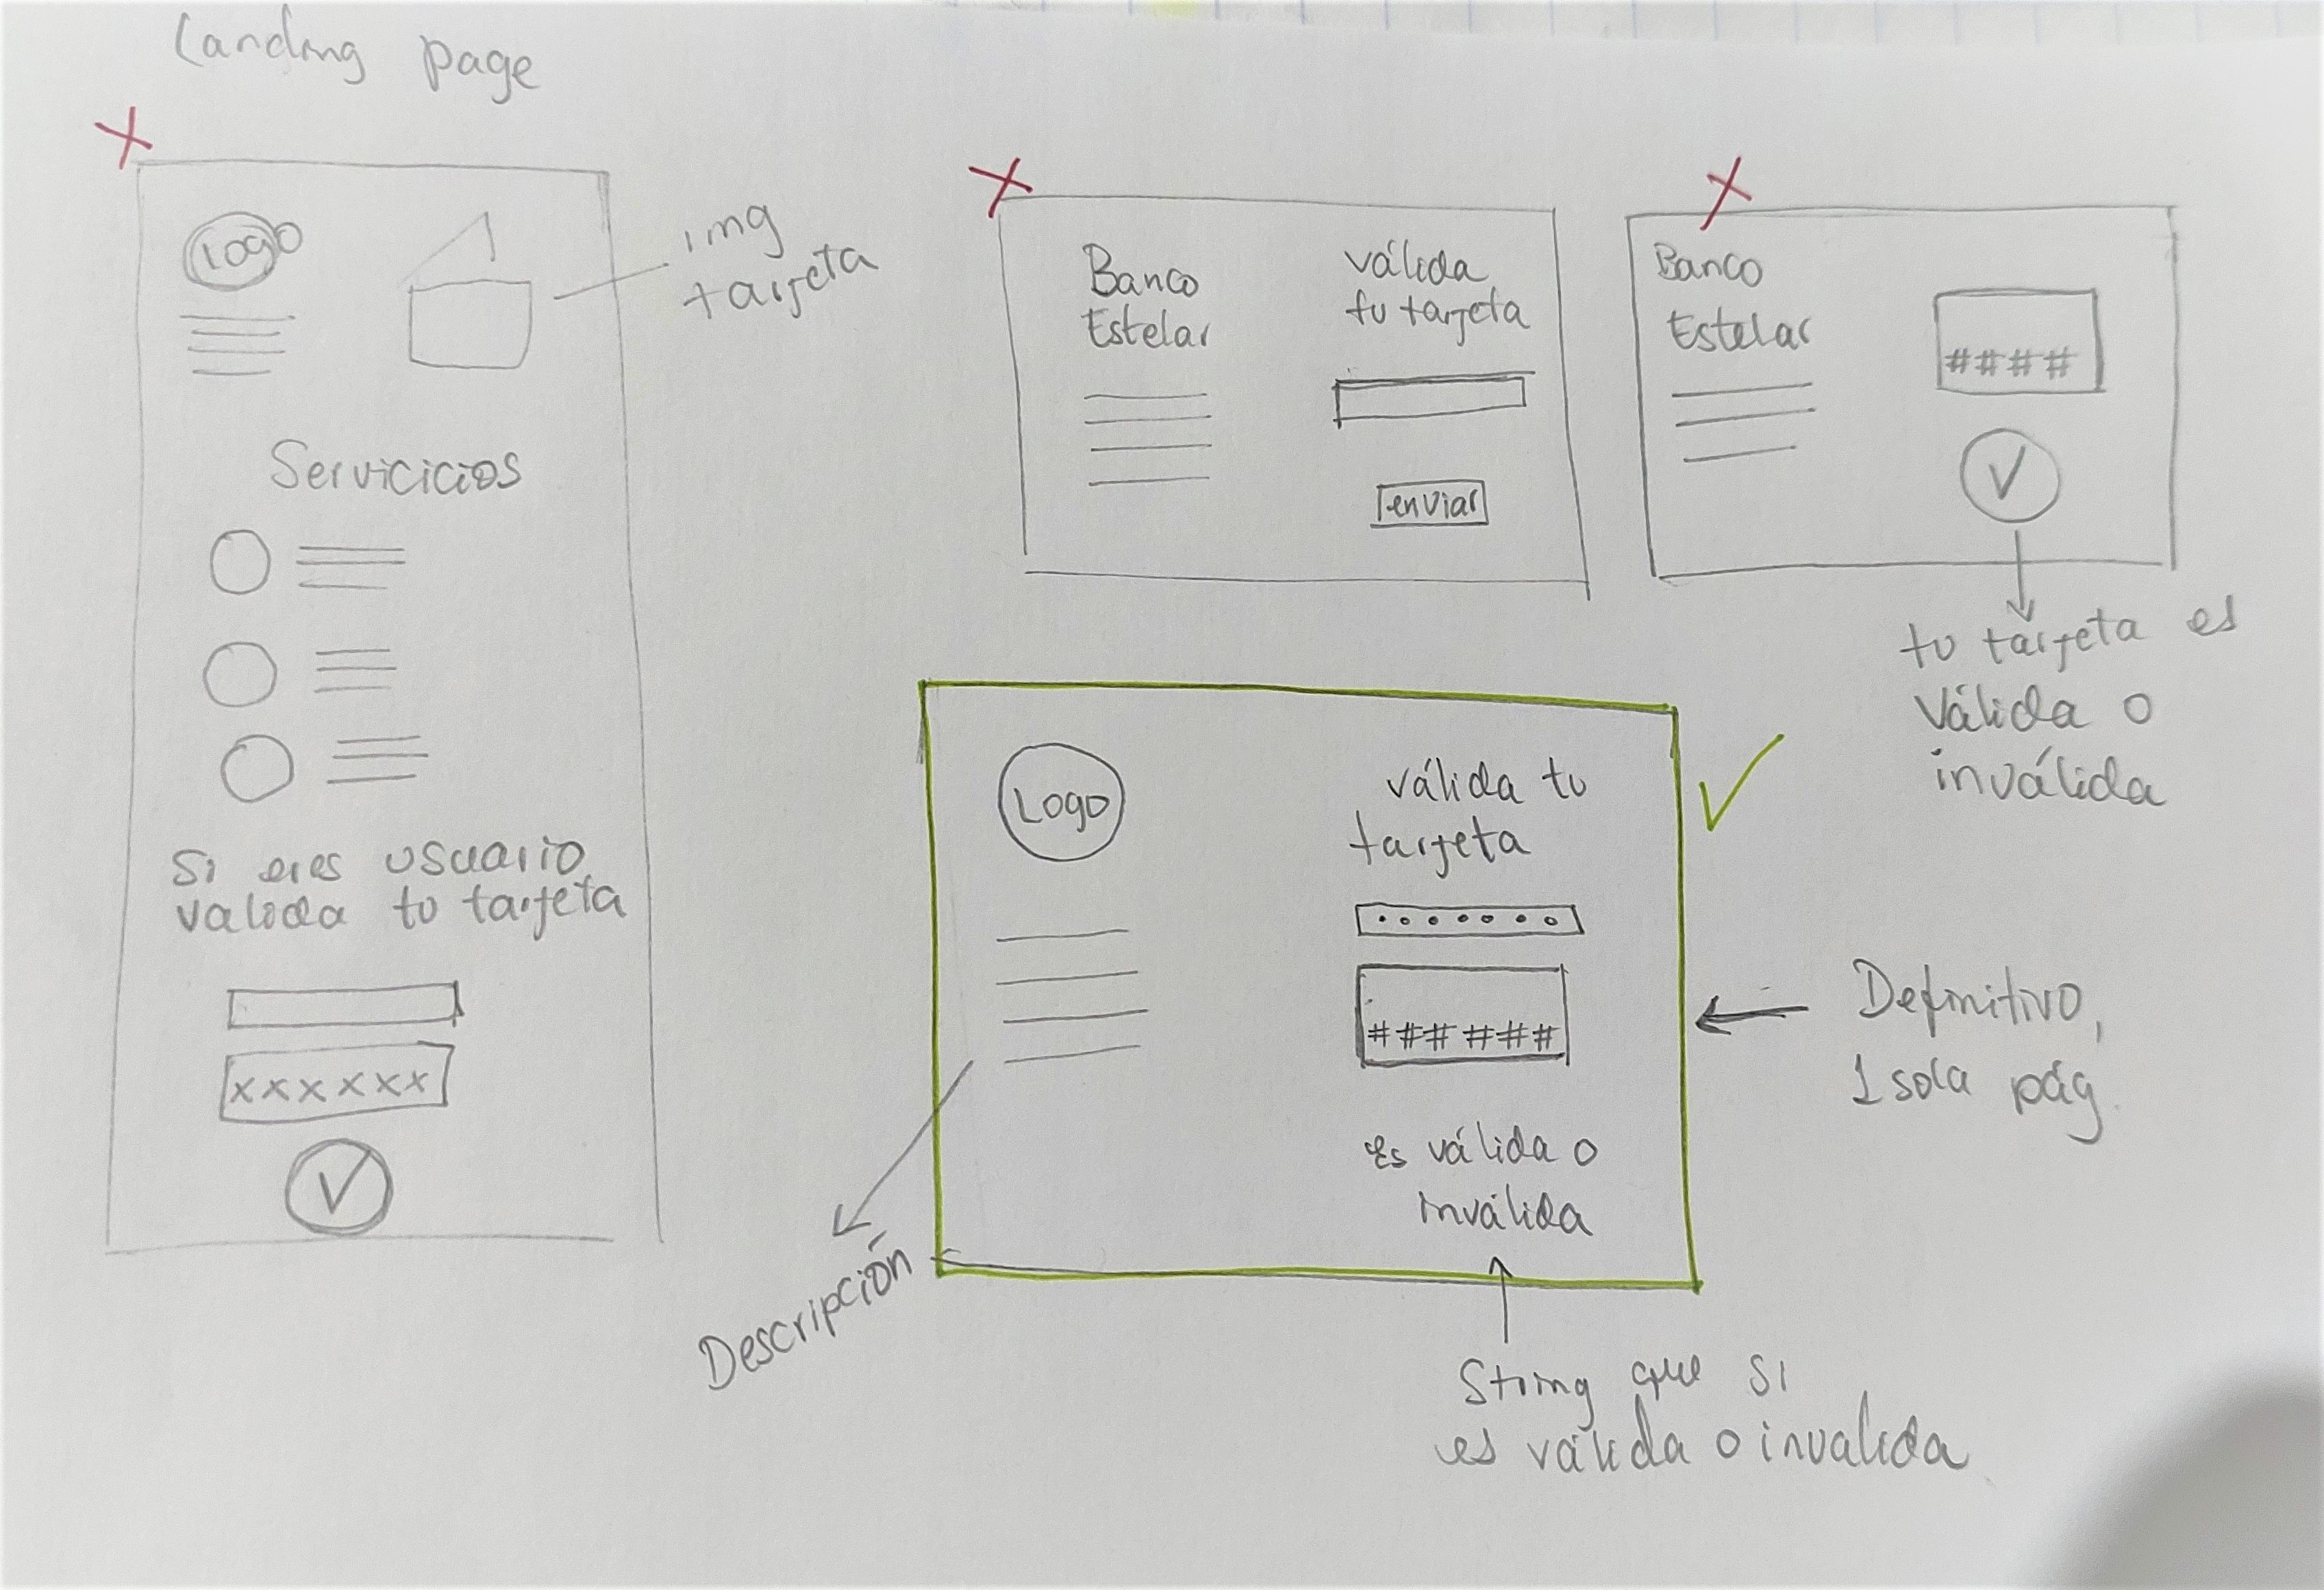 Landing page
Logo
img
tarjeta
Servicicios
Si eres usuario
valida tu tarjeta
xxxxxx
Banco
Estelar
válida
tu tarjeta
enviar
Banco
Estelar
####
tu tarjeta es
Válida o
inválida
Logo
válida tu
tarjeta
######
Es válida o
inválida
Definitivo,
1 sola pág.
Descripción
String que si
es válida o invalida